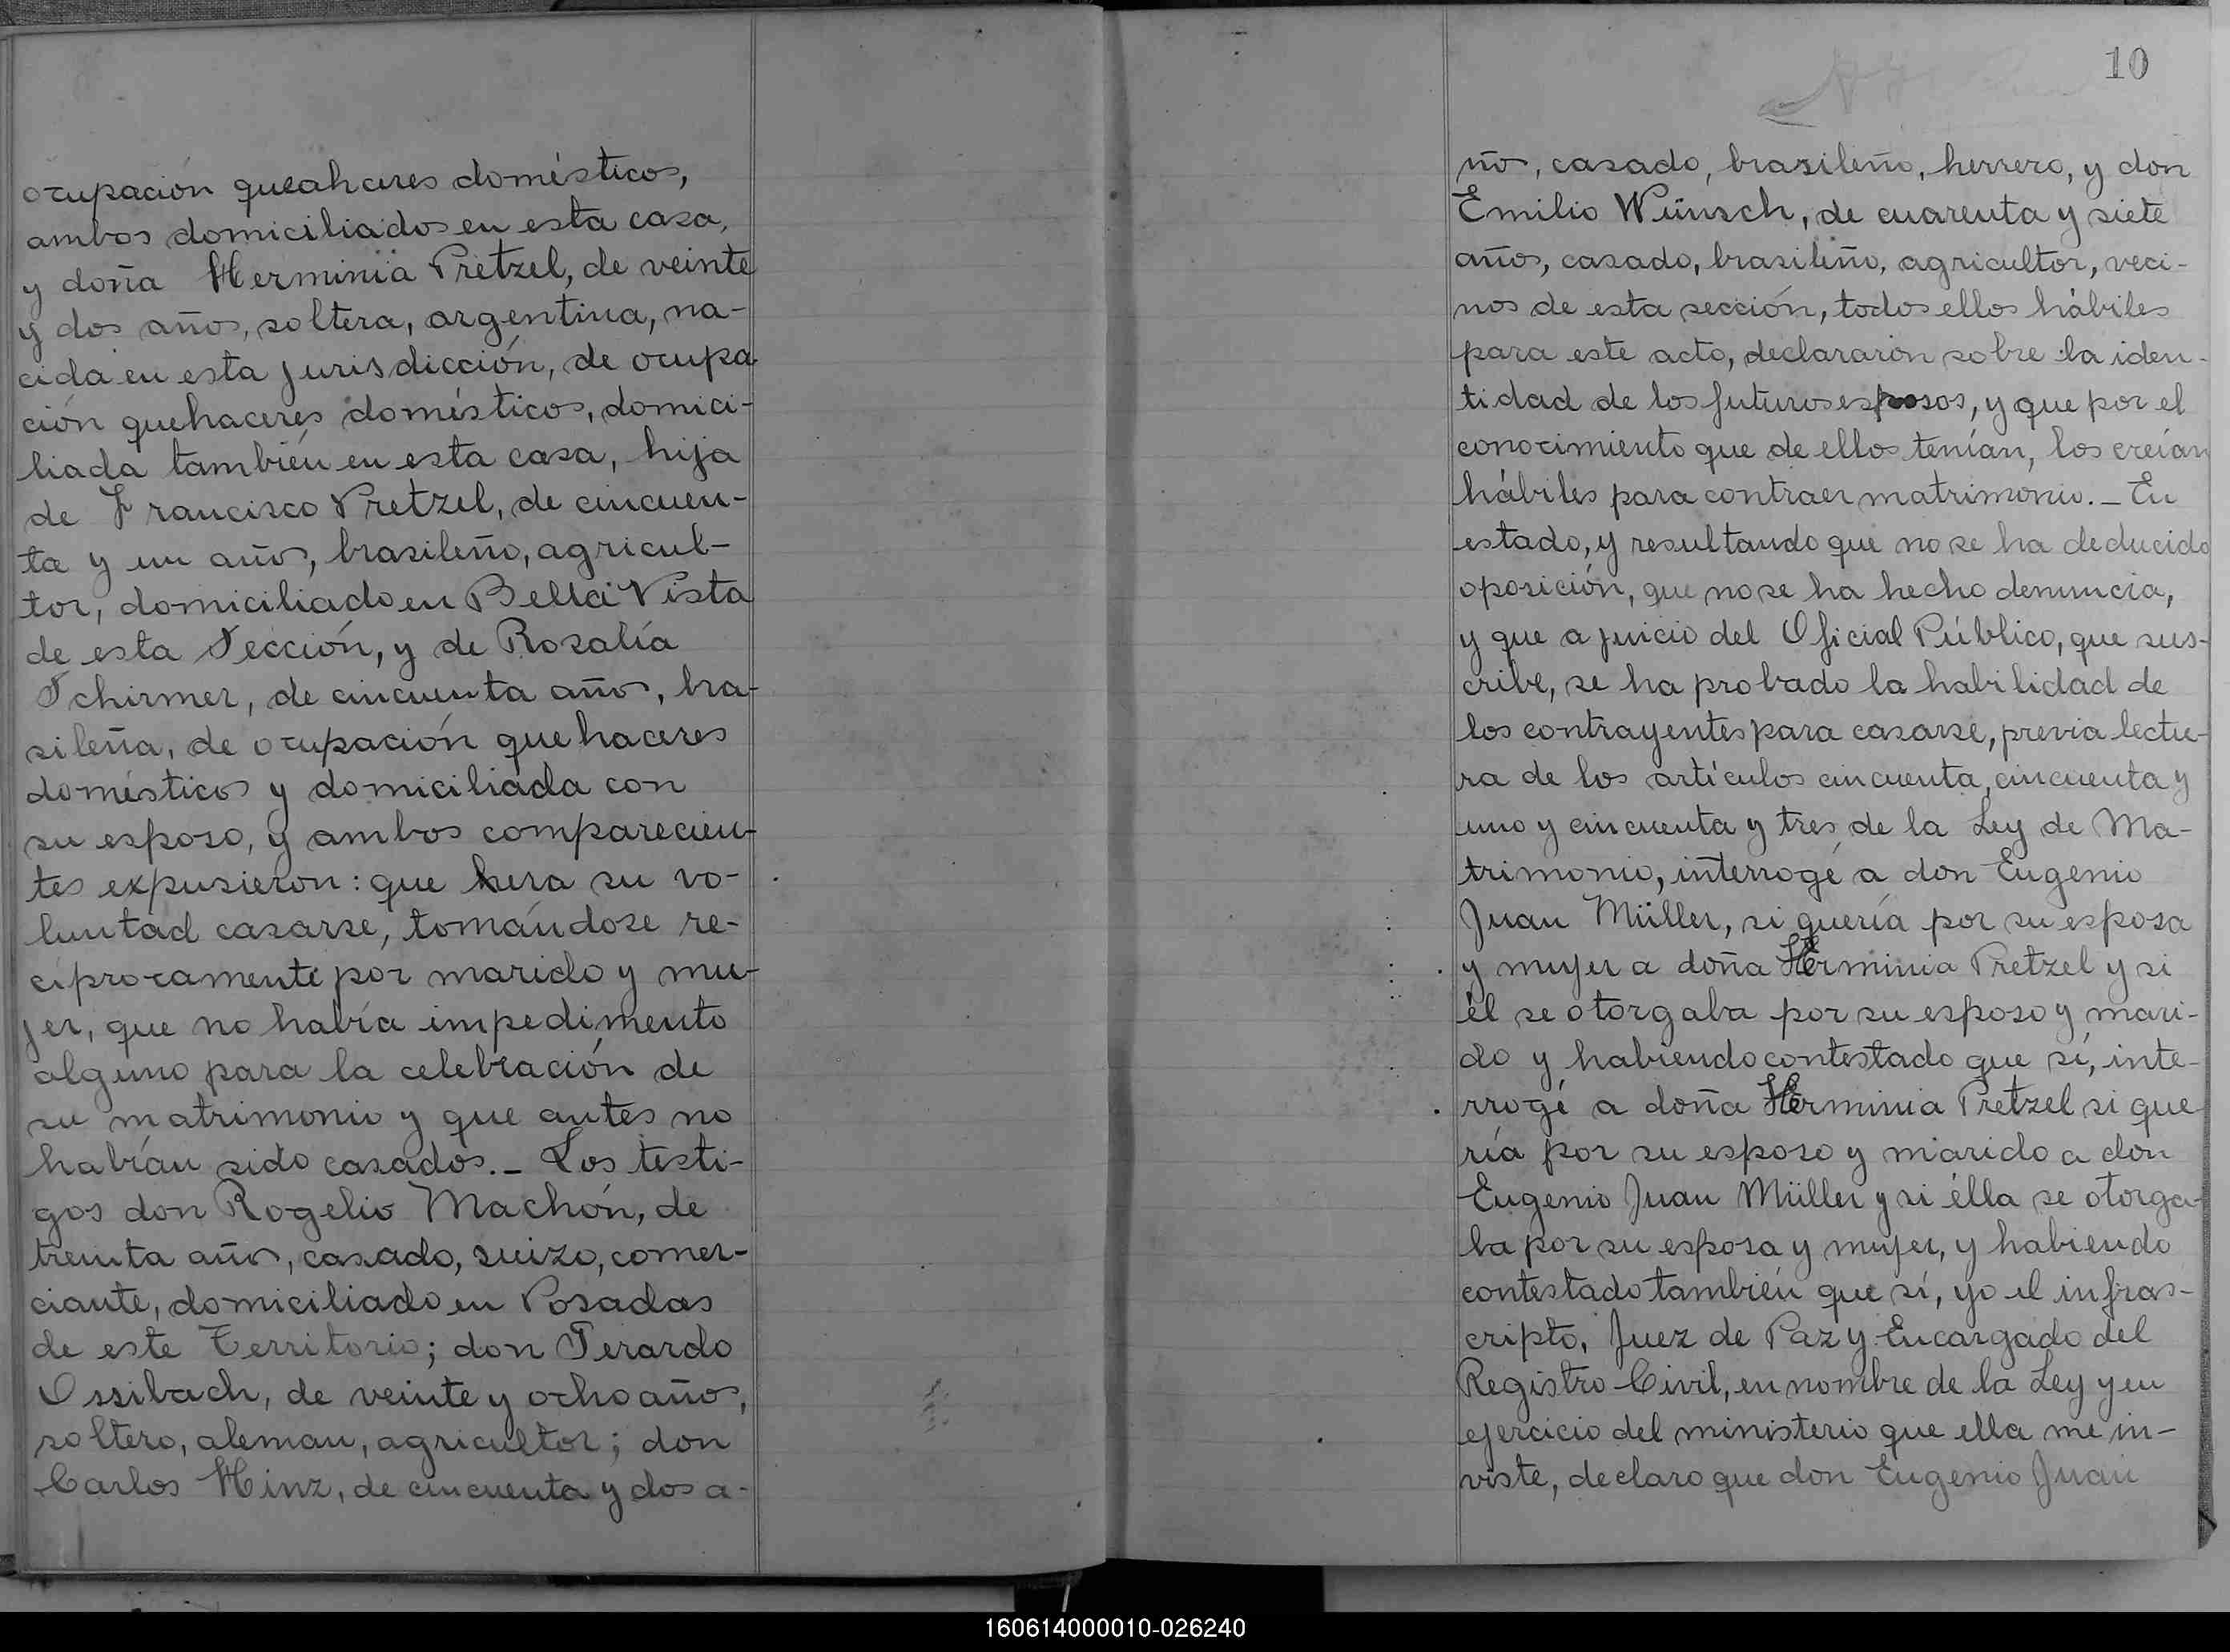 ocupación queahceres domésticos,
ambos domiciliados en esta casa,
y doña Herminia Pretzel, de veinte
y dos años, soltera, argentina, na-
cida en esta jurisdicción, de ocupa
ción quehaceres domésticos, domici-
liada también en esta casa, hija
de Francisco Pretzel, de cincuen-
ta y un años, brasileño, agricul-
tor, domiciliado en Bella Vista
de esta Sección, y de Rosalía
Schirmer, de cincuenta años, bra-
sileña, de ocupación quehaceres
domésticos y domiciliada con
su esposo, y ambos comparecien-
tes expusieron: que hera su vo-
luntad casarse, tomándose re-
ciprocamente por marido y mu-
jer, que no había impedimento
alguno para la celebración de
su matrimonio y que antes no
habían sido casados._ Los testi-
gos don Rogelio Machón, de
treinta años, casado, suizo, comer-
ciante, domiciliado en Posadas
de este Territorio; don Gerardo
Ossibach, de veinte y ocho años,
soltero, aleman, agricultor; don
Carlos Hinz, de cincuenta y dos a-
10
ños, casado, brasileño, herrero, y don
Emilio Wünsch, de cuarenta y siete
años, casado, brasileño, agricultor, veci-
nos de esta sección, todos ellos hábiles
para este acto, declararón sobre la iden-
tidad de los futuros esposos, y que por el
conocimiento que de ellos tenían, los creían
hábiles para contraer matrimonio._ En
estado, y resultando que no se ha deducido
oposición, que no se ha hecho denuncia,
y que a juicio del Oficial Público, que sus-
cribe, se ha probado la habilidad de
los contrayentes para casarse, previa lectu-
ra de los artículos cincuenta, cincuenta y
uno y cincuenta y tres de la Ley de Ma-
trimonio, interrogé a don Eugenio
Juan Müller, si quería por su esposa
y mujer a doña Herminia Pretzel y si
él se otorgaba por su esposo y mari-
do y habiendo contestado que sí, inte-
rrogé a doña Herminia Pretzel si que
ría por su esposo y marido a don
Eugenio Juan Müller y si élla se otorga-
ba por su esposa y mujer, y habiendo
contestado también que sí, yo el infras-
cripto, Juez de Paz y Encargado del
Registro Civil, en nombre de la Ley y en
ejercicio del ministerio que ella me in-
viste, declaro que don Eugenio Juan
160614000010-026240